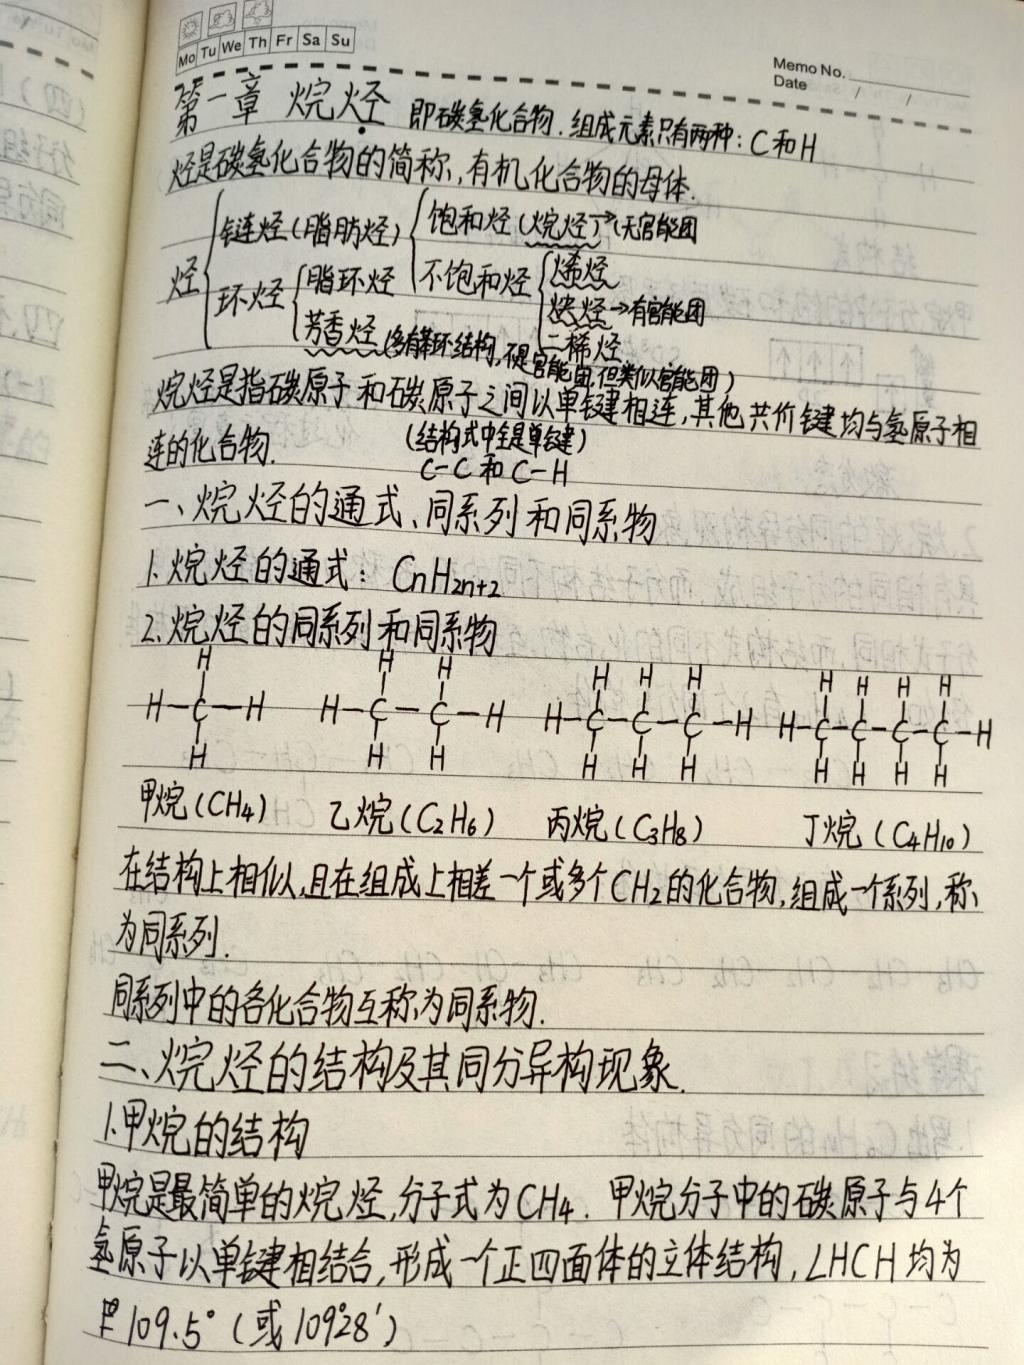 Mo Tu We Th Fr Sa Su
Memo No.
Date / /
第一章 烷烃 即碳氢化合物.组成元素只有两种:C和H
烃是碳氢化合物的简称,有机化合物的母体.
烃
链烃(脂肪烃)
饱和烃(烷烃)→(无官能团
不饱和烃
烯烃
炔烃→有官能团
二稀烃
环烃
脂环烃
芳香烃(多有苯环结构,不是官能团,但类似官能团)
烷烃是指碳原子和碳原子之间以单键相连,其他共价键均与氢原子相
连的化合物.
(结构式中全是单键)
C-C 和 C-H
一、烷烃的通式、同系列和同系物
1.烷烃的通式:CnH2n+2
2.烷烃的同系列和同系物
H H H H H H H H H H
H-C-H H-C-C-H H-C-C-C-H H-C-C-C-C-H
H H H H H H H H H H
甲烷(CH4) 乙烷(C2H6) 丙烷(C3H8) 丁烷(C4H10)
在结构上相似,且在组成上相差一个或多个CH2的化合物,组成一个系列,称
为同系列.
同系列中的各化合物互称为同系物.
二、烷烃的结构及其同分异构现象.
1.甲烷的结构
甲烷是最简单的烷烃,分子式为CH4.甲烷分子中的碳原子与4个
氢原子以单键相结合,形成一个正四面体的立体结构,∠HCH均为
109.5°(或109°28′)